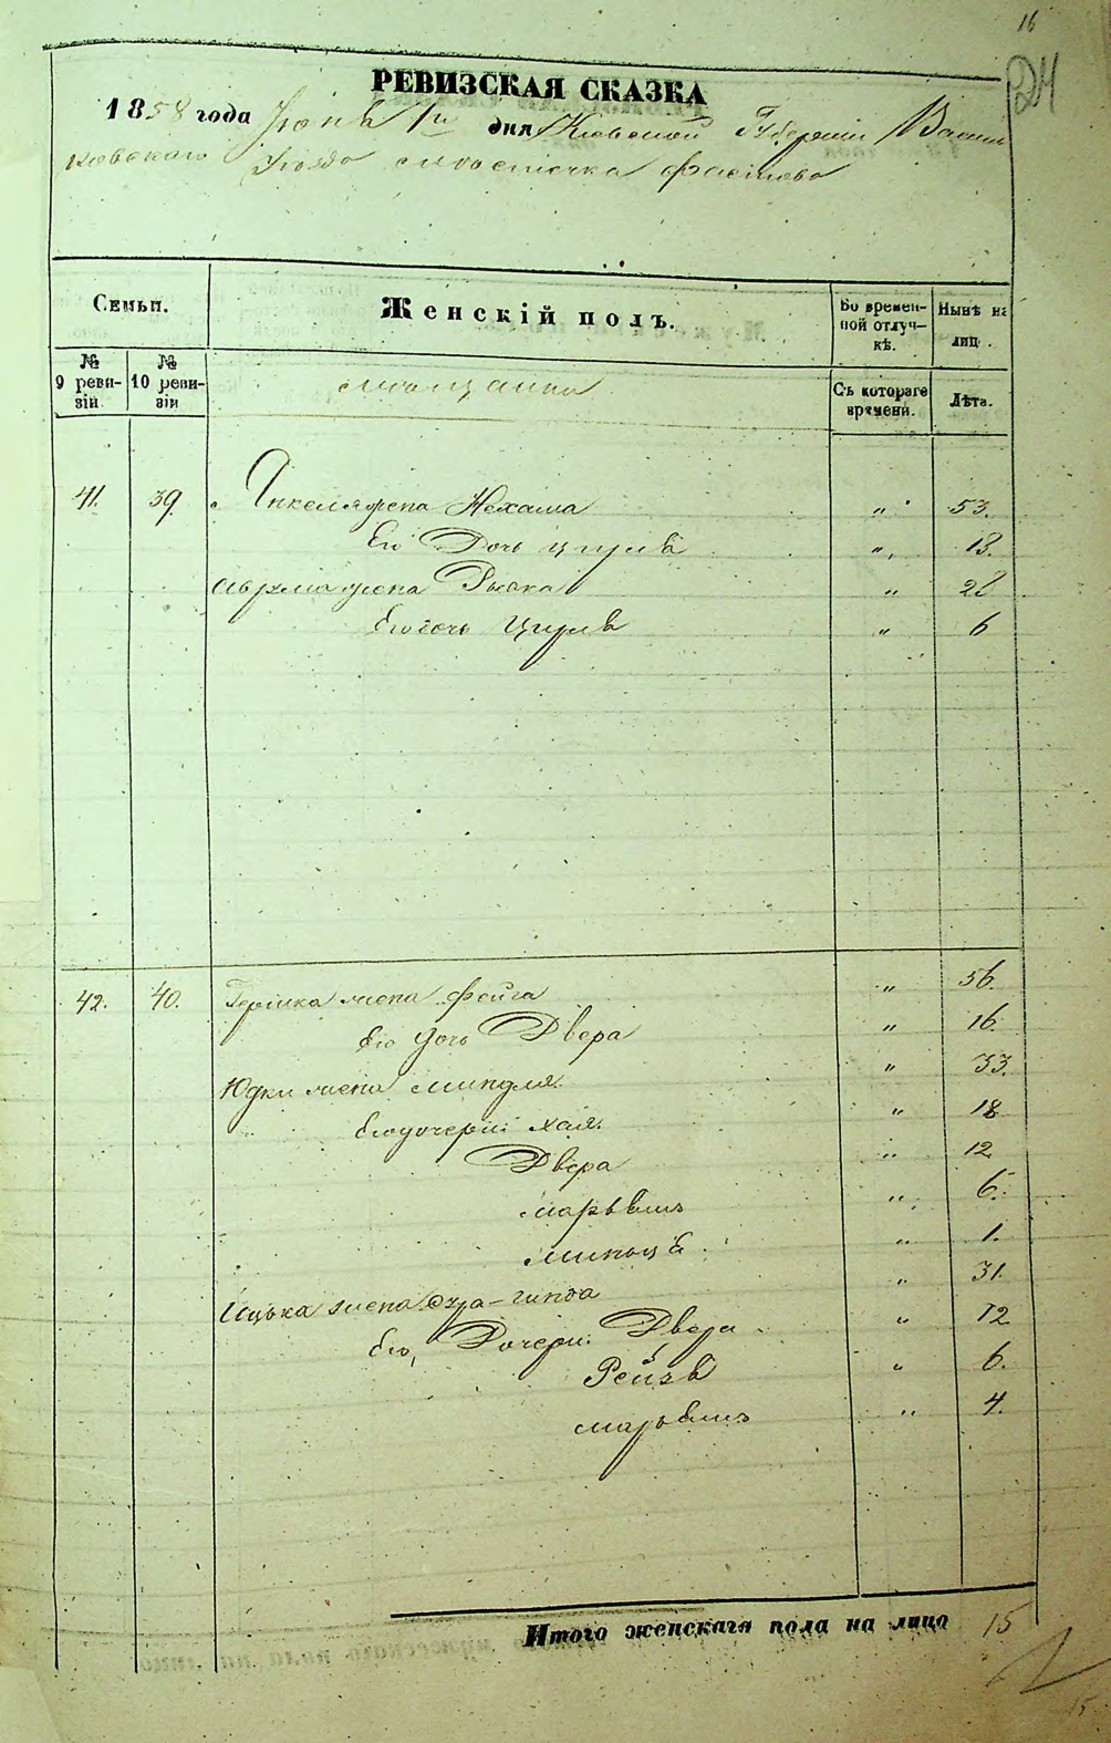 16
24
РЕВИЗСКАЯ СКАЗКА
1858 года Іюня 1го дня Кіевской Губерніи Василь
ковскаго Уезда местечка Фастова
Семьи.
Женскій полъ.
Во времен-
ной отлуч-
кѣ.
Нынѣ на
лиц .
№
9 реви-
зіи
№
10 реви-
зіи
мещанка
Съ котораго
времени.
Лѣта.
41. 39. Янкеля жена Нехама " 53.
Его Дочь Цирля " 18.
Аврума жена Рыска " 28
Его дочь Цирля " 6
42. 40. Гершка жена Фейга " 56.
Его дочь Двера " 16.
Юдки жена Миндля " 33.
Его дочери Хая " 18
Двера " 12
Марьямъ " 6.
" 1.
Ицька жена " 31.
Его Дочери Двера " 12
Рейзя " 6.
Марьямъ " 4.
Итого женскаго пола на лицо 15
15